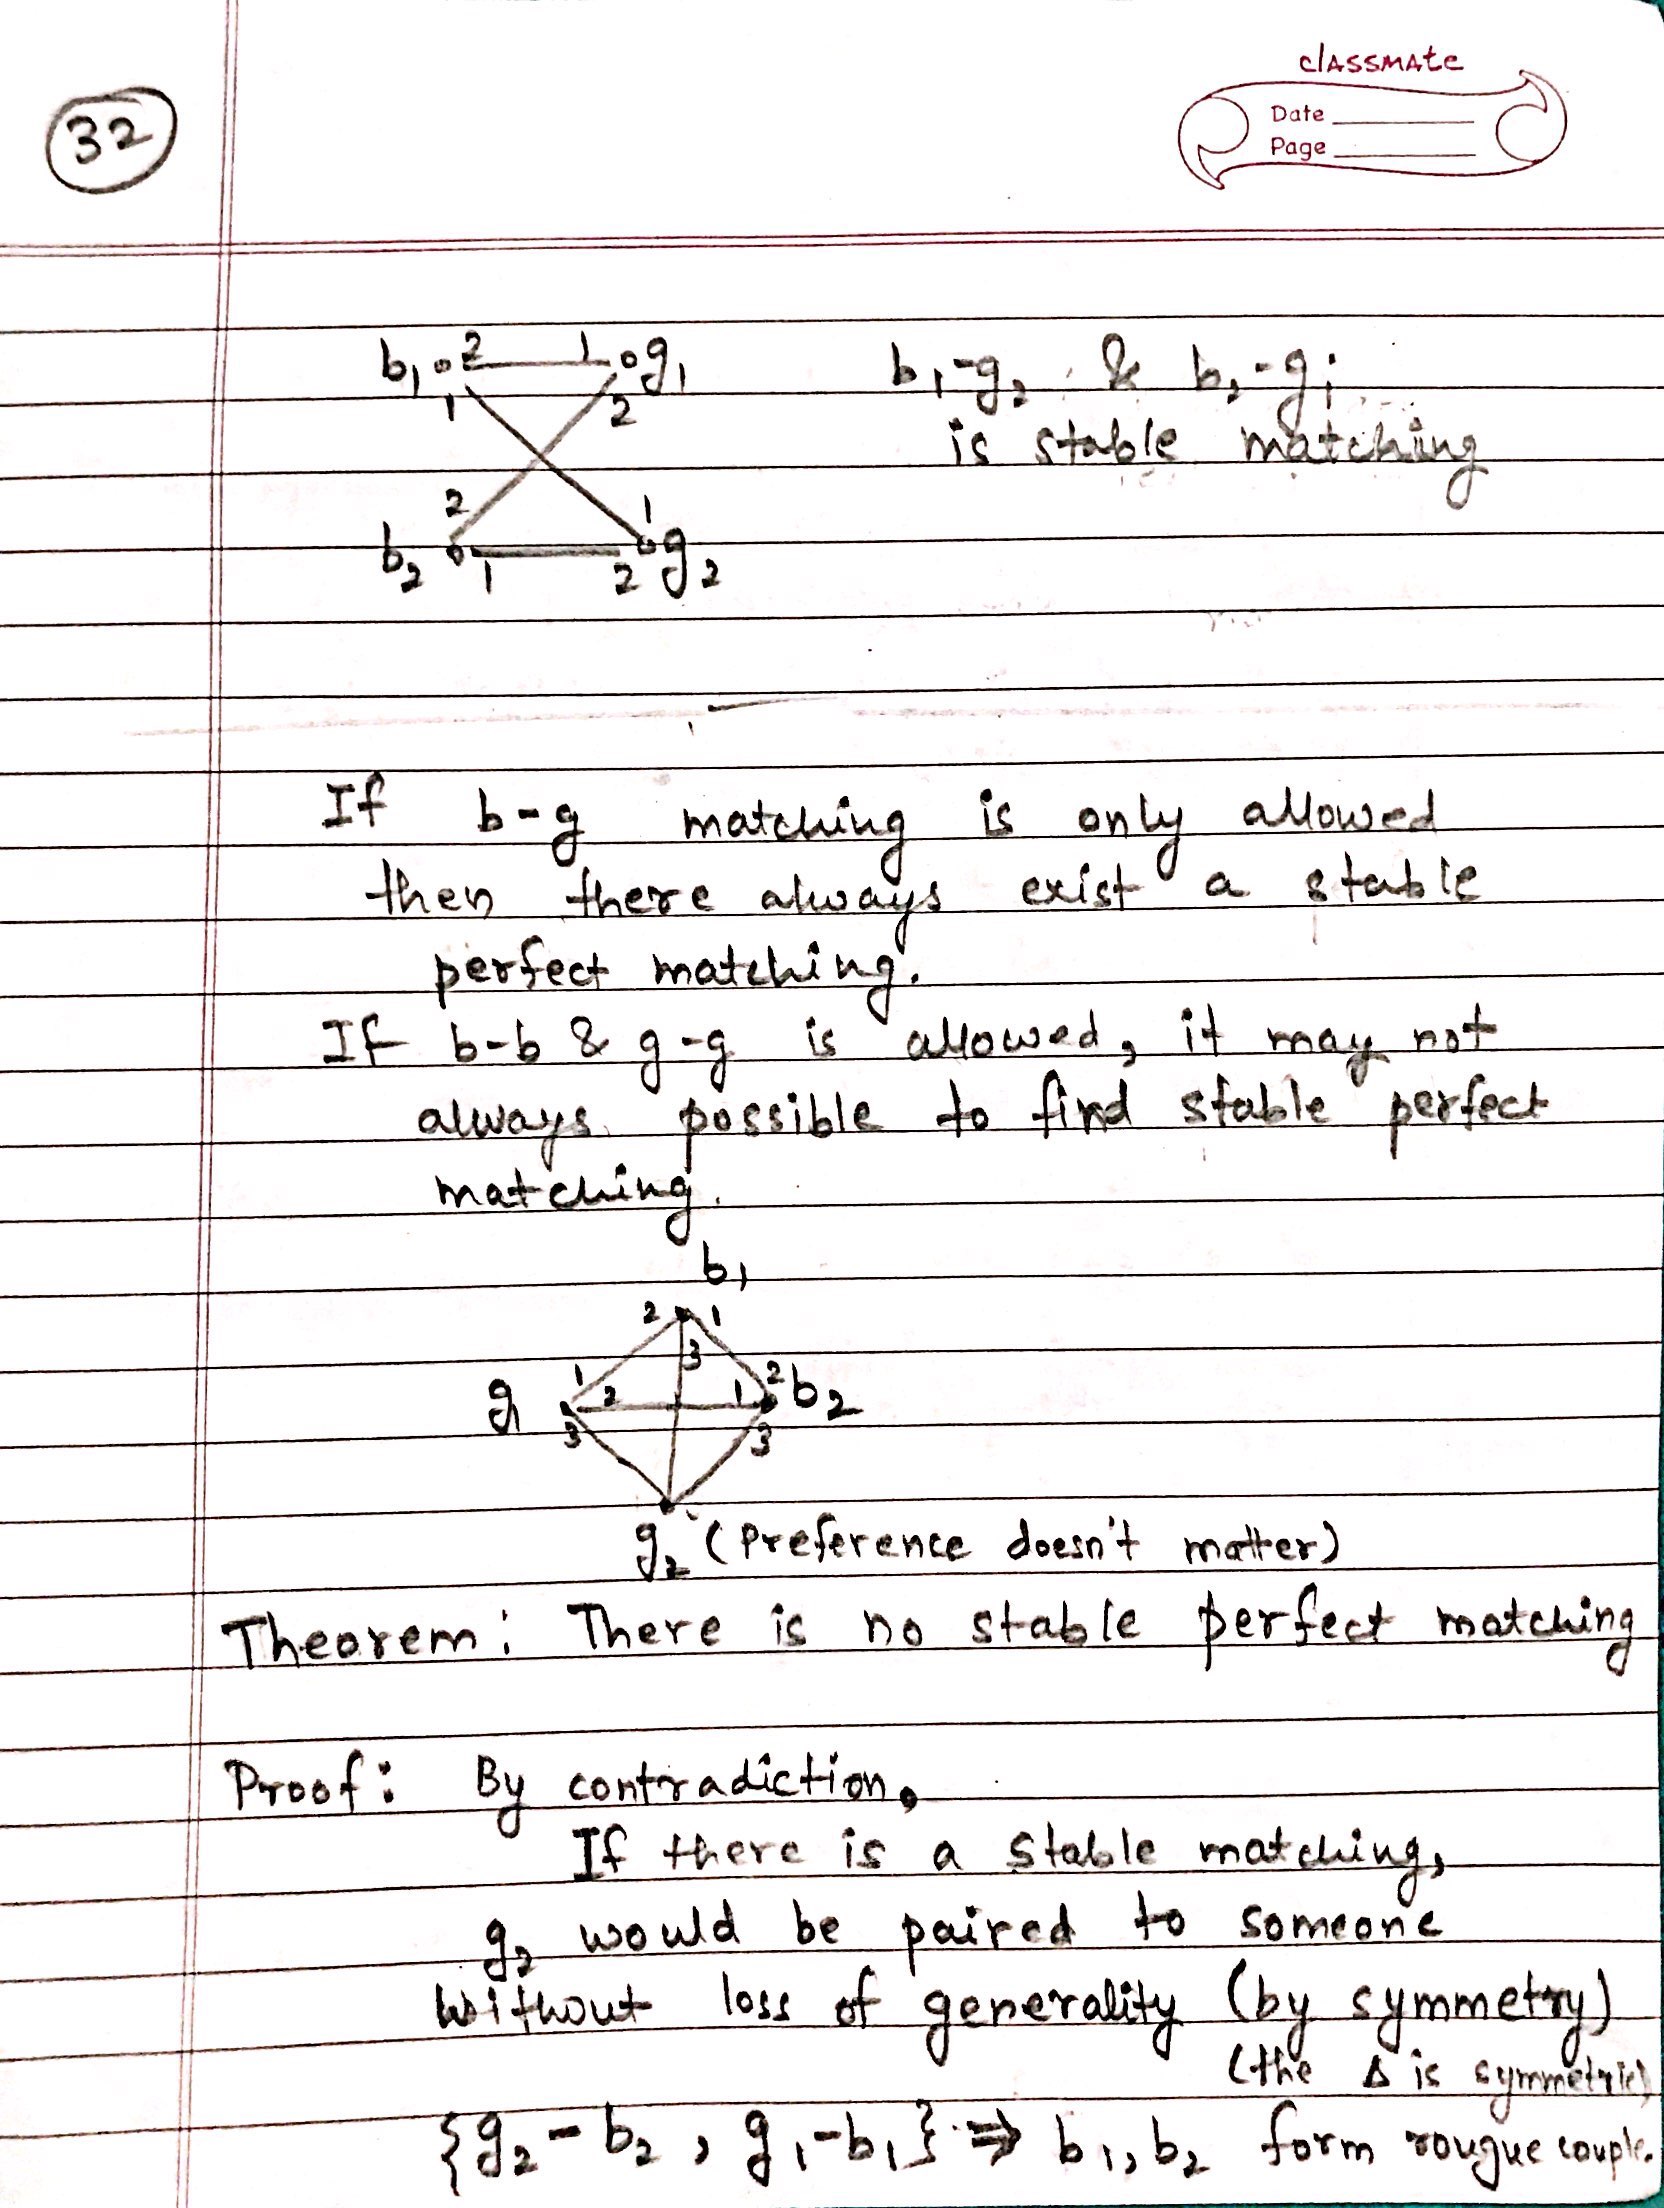 classmate
Date
Page
32
b₁ 2 1 g₁
1 2
b₁-g₂ & b₂-g₁
is stable matching
2 1
b₂ 1 2 g₂
If b-g matching is only allowed
then there always exist a stable
perfect matching.
If b-b & g-g is allowed, it may not
always possible to find stable perfect
matching.
b₁
2 1
3
1 2 1 2
g₁ b₂
3 3
g₂ (Preference doesn't matter)
Theorem: There is no stable perfect matching
Proof: By contradiction,
If there is a stable matching,
g₂ would be paired to someone
without loss of generality (by symmetry)
(the Δ is symmetric)
{g₂-b₂, g₁-b₁} ⇒ b₁, b₂ form rougue couple.